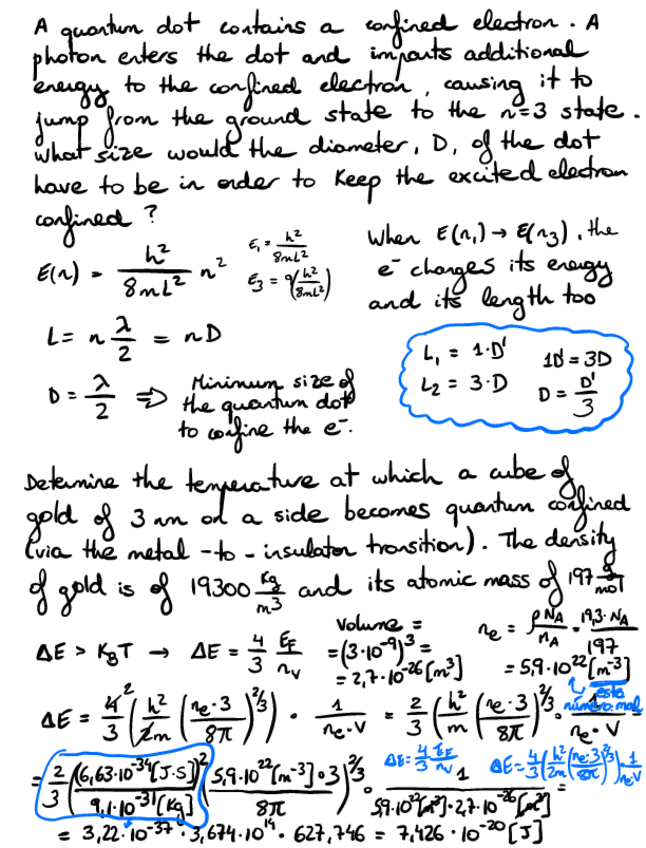 A quantum dot contains a confined electron. A
photon enters the dot and imparts additional
energy to the confined electron, causing it to
jump from the ground state to the n=3 state.
What size would the diameter, D, of the dot
have to be in order to keep the excited electron
confined?
E(n) = h²/8mL² n²
E₁ = h²/8mL²
E₃ = 9(h²/8mL²)
When E(n₁) → E(n₃), the
e⁻ changes its energy
and its length too
L = n λ/2 = nD
D = λ/2 ⇒ Minimum size of
the quantum dot
to confine the e⁻.
L₁ = 1·D'
L₂ = 3·D
1D' = 3D
D = D'/3
Determine the temperature at which a cube of
gold of 3 nm on a side becomes quantum confined
(via the metal-to-insulator transition). The density
of gold is of 19300 Kg/m³ and its atomic mass of 197 g/mol
ΔE > K_BT → ΔE = 4/3 E_F/n_V
Volume =
= (3·10⁻⁹)³ =
= 2,7·10⁻²⁶ [m³]
n_e = ρN_A/m_A = 19,3·N_A/197
= 5,9·10²² [m⁻³]
este
número mal
ΔE = 4²/3 (h²/2m (n_e·3/8π)^2/3) · 1/n_e·V = 2/3 (h²/m (n_e·3/8π)^2/3) · 1/n_e·V =
ΔE = 4/3 E_F/n_V
ΔE = 4/3 (h²/2m (n_e·3/8π)^2/3) · 1/n_e·V
= 2/3 ((6,63·10⁻³⁴ [J·S])²/9,1·10⁻³¹ [Kg]) (5,9·10²² [m⁻³]·3/8π)^2/3 · 1/5,9·10²² [m⁻³]·2,7·10⁻²⁶ [m³] =
= 3,22·10⁻³⁷ · 3,674·10¹⁴ · 627,746 = 7,426·10⁻²⁰ [J]